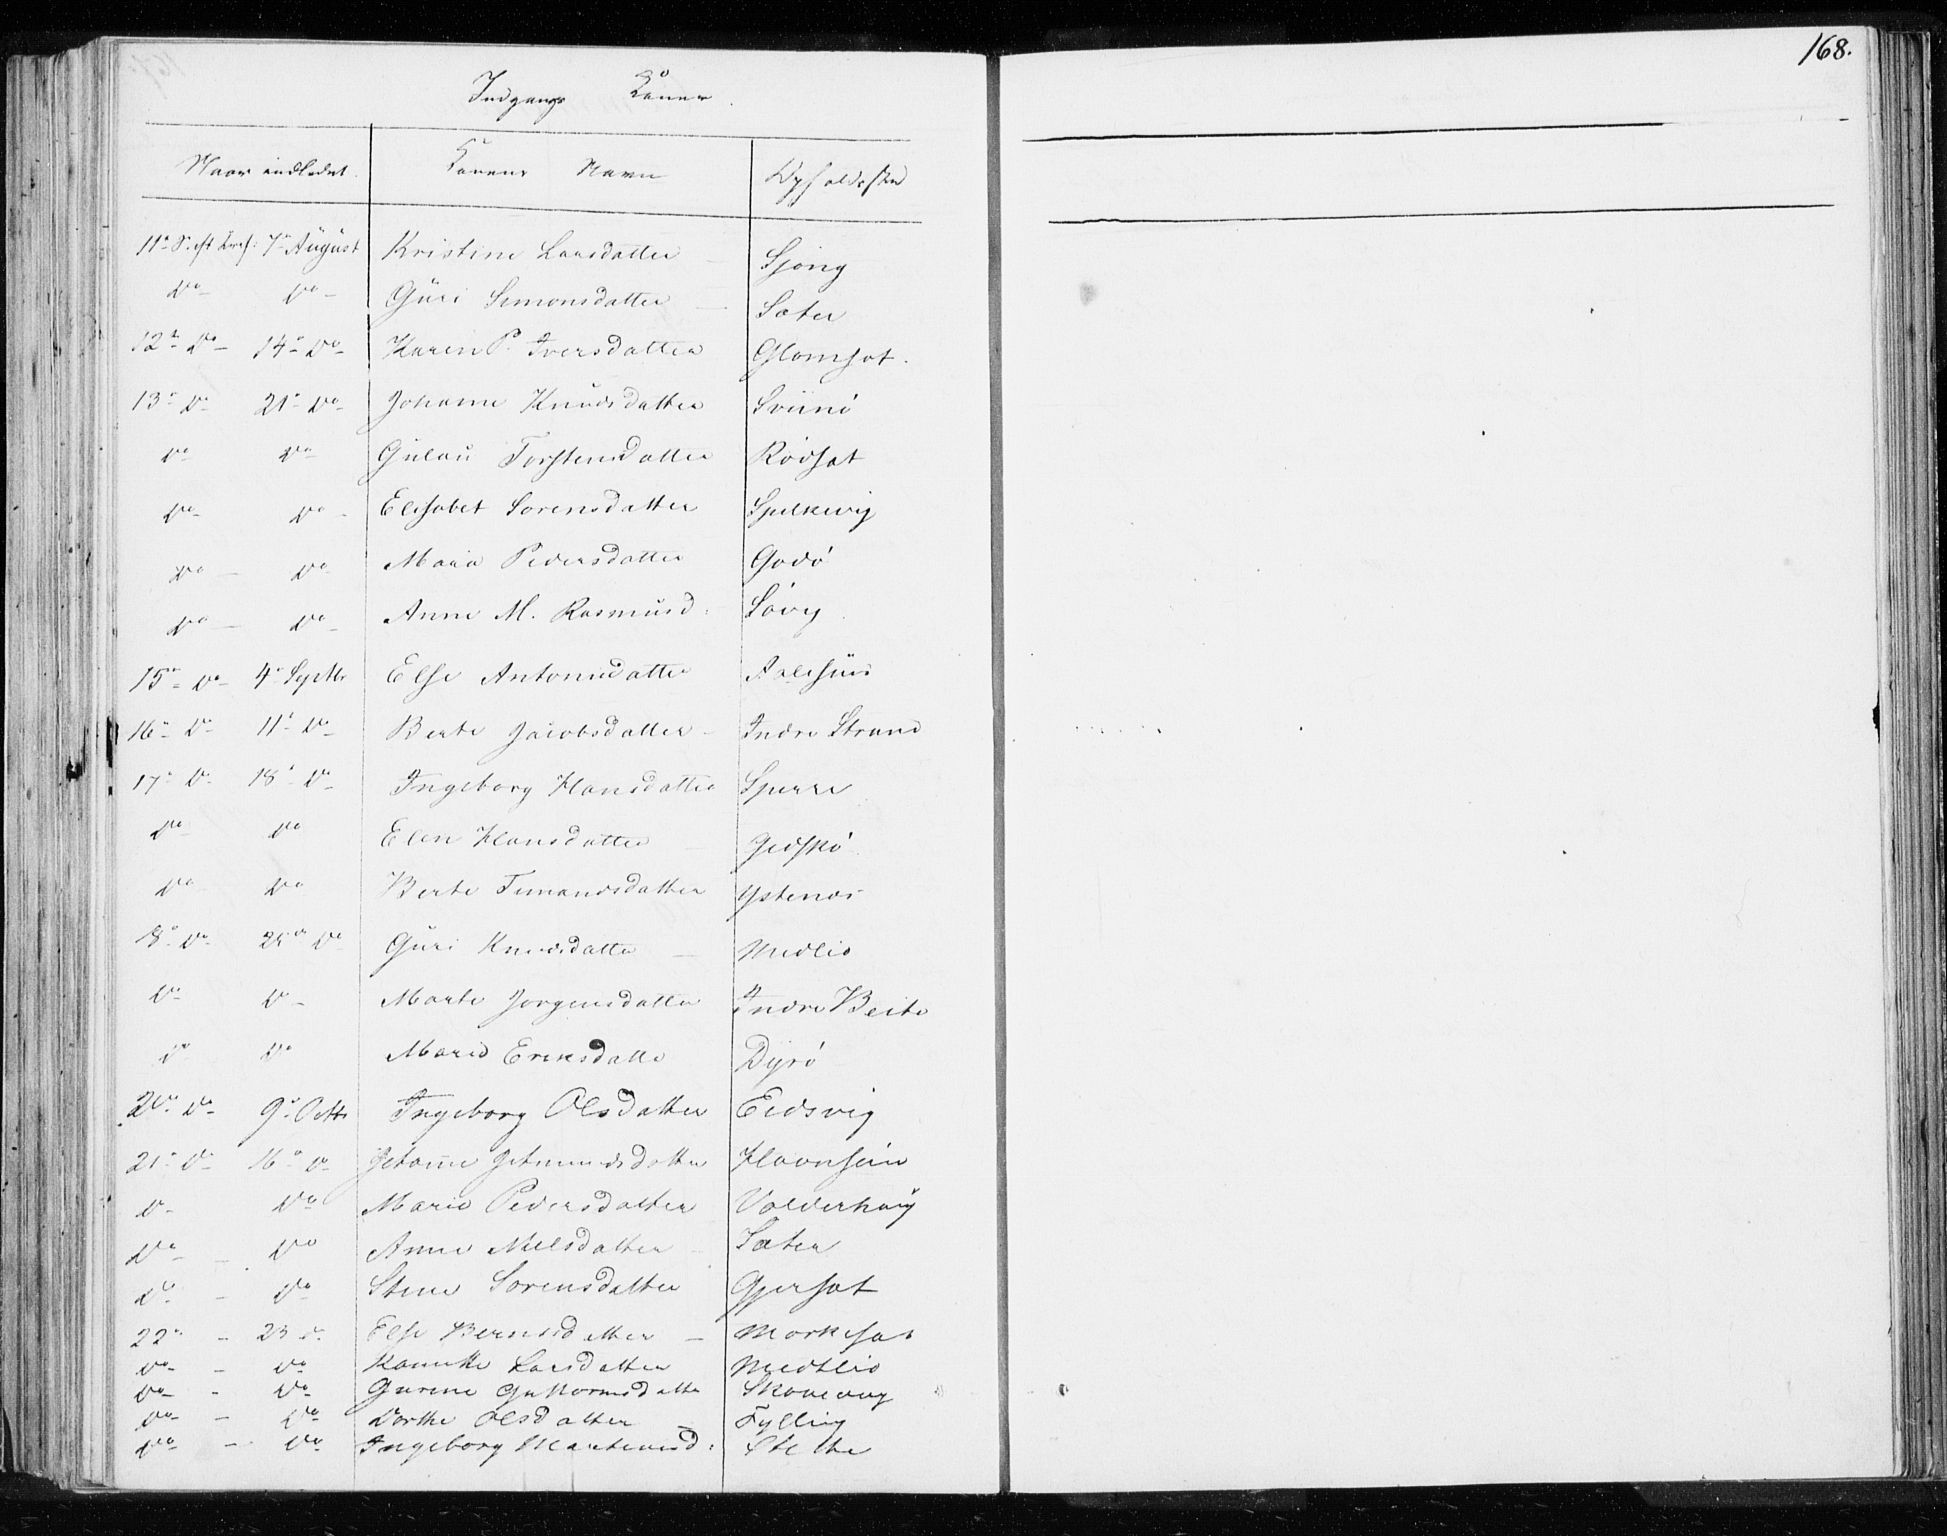 168.
Indgangs Koner.
Naar indledet. Konens Navn Opholdssted
11te S. eft Tref: 7de August Kristine Larsdatter Sjong
Do Do Gŭri Simonsdatter Sæter
12te Do 14de Do Karen P. Iversdatter Glomsæt.
13de Do 21de Do Johanne Knŭdsdatter Sviinö
Do Do Gŭlaŭ Torstensdatter Rödsæt
Do Do Elisabet Sorensdatter Spilkevig
Do Do Maria Pedersdatter Godö
Do Do Anne M. Rasmŭsd. Sövig
15de Do 4de Septbr Else Antonsdatter Aalesŭnd
16de Do 11te Do Berte Jacobsdatter Indre Strand
17de Do 18de Do Ingeborg Hansdatter Sperre
Do Do Elen Hansdatter Gidskö
Do Do Berte Timandsdatter Ystenæs
18de Do 25de Do Gŭri Knudsdatter Medlid
Do Do Marte Jorgensdatter Indre Beite
Do Do Marie Eriksdatter Dyrö
20de Do 9de Octbr Ingeborg Olsdatter Eidsvig
21de Do 16de Do Johanne Jetmundsdatter Havnseim
Do Do Marie Pedersdatter Valderhaŭg
Do Do Anne Nielsdatter Sæter
Do Do Stine Sorensdatter Gjersæt
22de 23 Do Else Berntsdatter Morkesæt
Do Do Larsdatter Medtlid
Do Do Gurine Guttormsdatter
Do Do Dorthe Olsdatter Fylling
Do Do Ingeborg Martinusd: